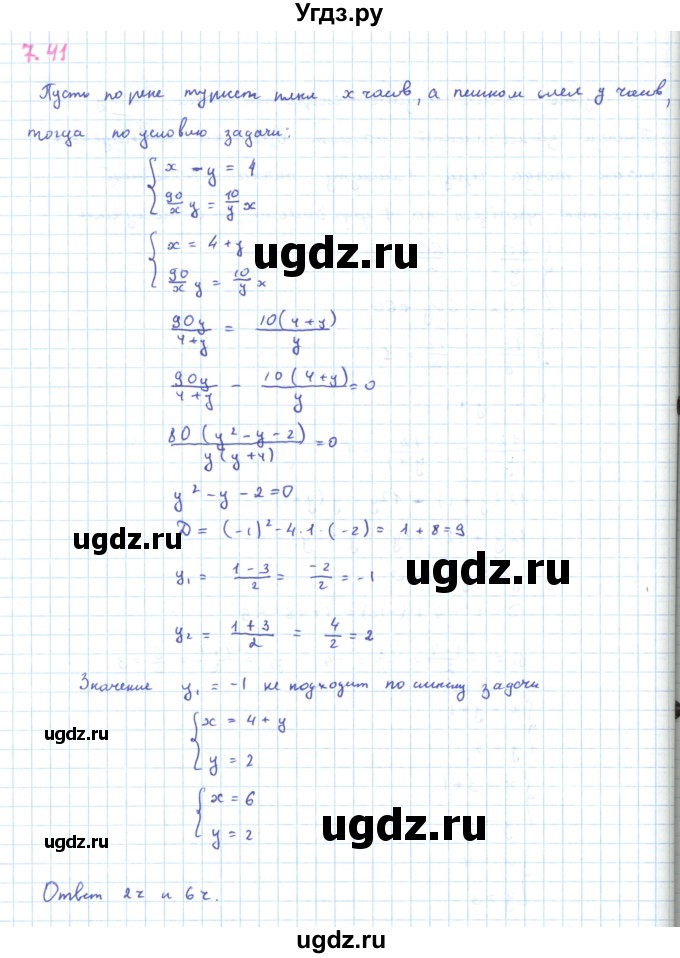 Угдз.ру
7.41
Пусть по реке турист плыл x часов, а пешком шел y часов,
тогда по условию задачи:
x - y = 4
90/x y = 10/y x
x = 4 + y
ugdz.ru
90/x y = 10/y x
90y/4+y = 10(4+y)/y
90y/4+y - 10(4+y)/y = 0
80(y² - y - 2)/y(y+4) = 0
y² - y - 2 = 0
ugdz.ru
D = (-1)² - 4·1·(-2) = 1 + 8 = 9
ugdz.ru
y₁ = 1-3/2 = -2/2 = -1
y₂ = 1+3/2 = 4/2 = 2
Значение y₁ = -1 не подходит по смыслу задачи
x = 4 + y
ugdz.ru
y = 2
x = 6
ugdz.ru
y = 2
ugdz.ru
Ответ 2ч и 6ч.
ugdz.ru